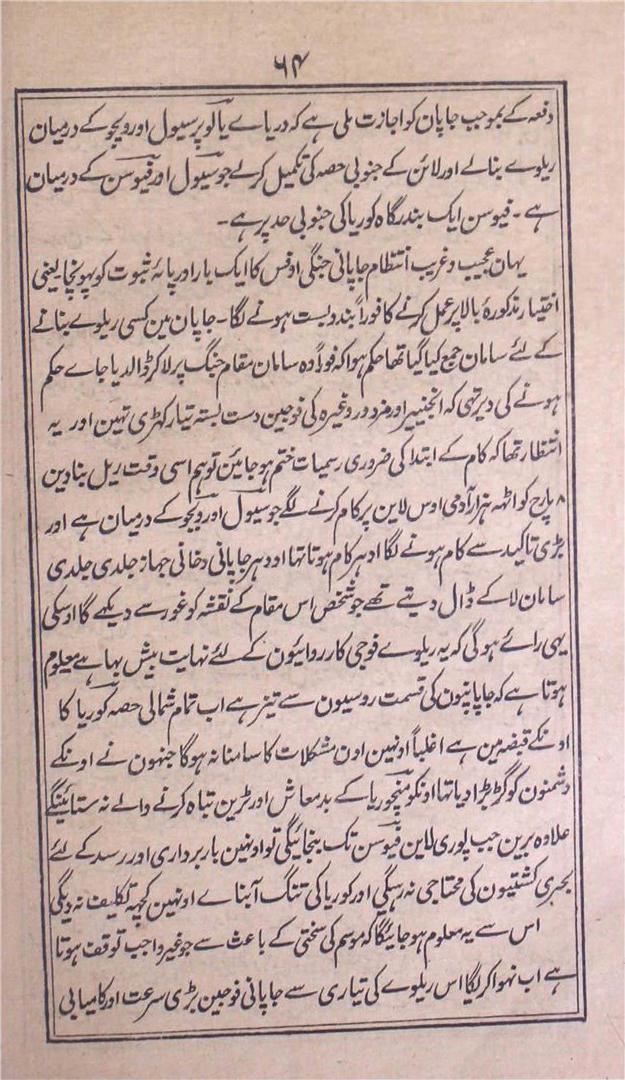 ۶۴
دفعہ کے بموجب جاپان کو اجازت ملی ہے کہ دریاے یالو پر سیول اور ویجو کے درمیان
ریلوے بنالے اور لائن کے جنوبی حصہ کی تکمیل کرلے جو سیول اور فیوسن کے درمیان
ہے ۔ فیوسن ایک بندرگاہ کوریا کی جنوبی حد پر ہے ۔
یہان عجیب و غریب انتظام جاپانی جنگی اوفس کا ایک بار اور پایۂ ثبوت کو پہونچا یعنی
اختیار مذکورۂ بالا پر عمل کرنے کا فوراً بندوبست ہونے لگا ۔ جاپان مین کسی ریلوے بنانے
کے لئے سامان جمع کیا گیا تھا حکم ہوا کہ فوراً وہ سامان مقام جنگ پر لا کر ڈالدیا جاے حکم
ہونے کی دیر تہی کہ انجنییر اور مزدور وغیرہ کی فوجین دست بستہ تیار کھڑی تہین اور یہ
انتظار تھا کہ کام کے ابتدا کی ضروری رسمیات ختم ہو جایئن تو ہم اسی وقت ریل بنا دین
۸ مارچ کو اٹھہ ہزار آدمی اوس لاین پر کام کرنے لگے جو سیول اور ویجو کے درمیان ہے اور
بڑی تاکید سے کام ہونے لگا ادہر کام ہوتا تھا اودہر جاپانی دخانی جہاز جلدی جلدی
سامان لا کے ڈال دیتے تھے جو شخص اس مقام کے نقشہ کو غور سے دیکھے گا اوسکی
یہی رائے ہوگی کہ یہ ریلوے فوجی کارروائیون کے لئے نہایت بیش بہا ہے معلوم
ہوتا ہے کہ جاپانیون کی قسمت روسیون سے تیز ہے اب تمام شمالی حصہ کوریا کا
اونکے قبضہ مین ہے اغلباً اونہین اون مشکلات کا سامنا نہ ہوگا جنہون نے اونکے
دشمنون کو گڑبڑا دیا تھا اونکو منچوریا کے بدمعاش اور ٹرین تباہ کرنے والے نہ ستائینگے
علاوہ برین جب پوری لاین فیوسن تک بنجائیگی تو اونہین باربرداری اور رسد کے لئے
بحری کشتیون کی محتاجی نہ رہیگی اور کوریا کی تنگ آبناے اونہین کچہہ تکلیف نہ دیگی
اس سے یہ معلوم ہو جائیگا کہ موسم کی سختی کے باعث سے جو غیر واجب توقف ہوتا
ہے اب نہوا کریگا اس ریلوے کی تیاری سے جاپانی فوجین بڑی سرعت اور کامیابی